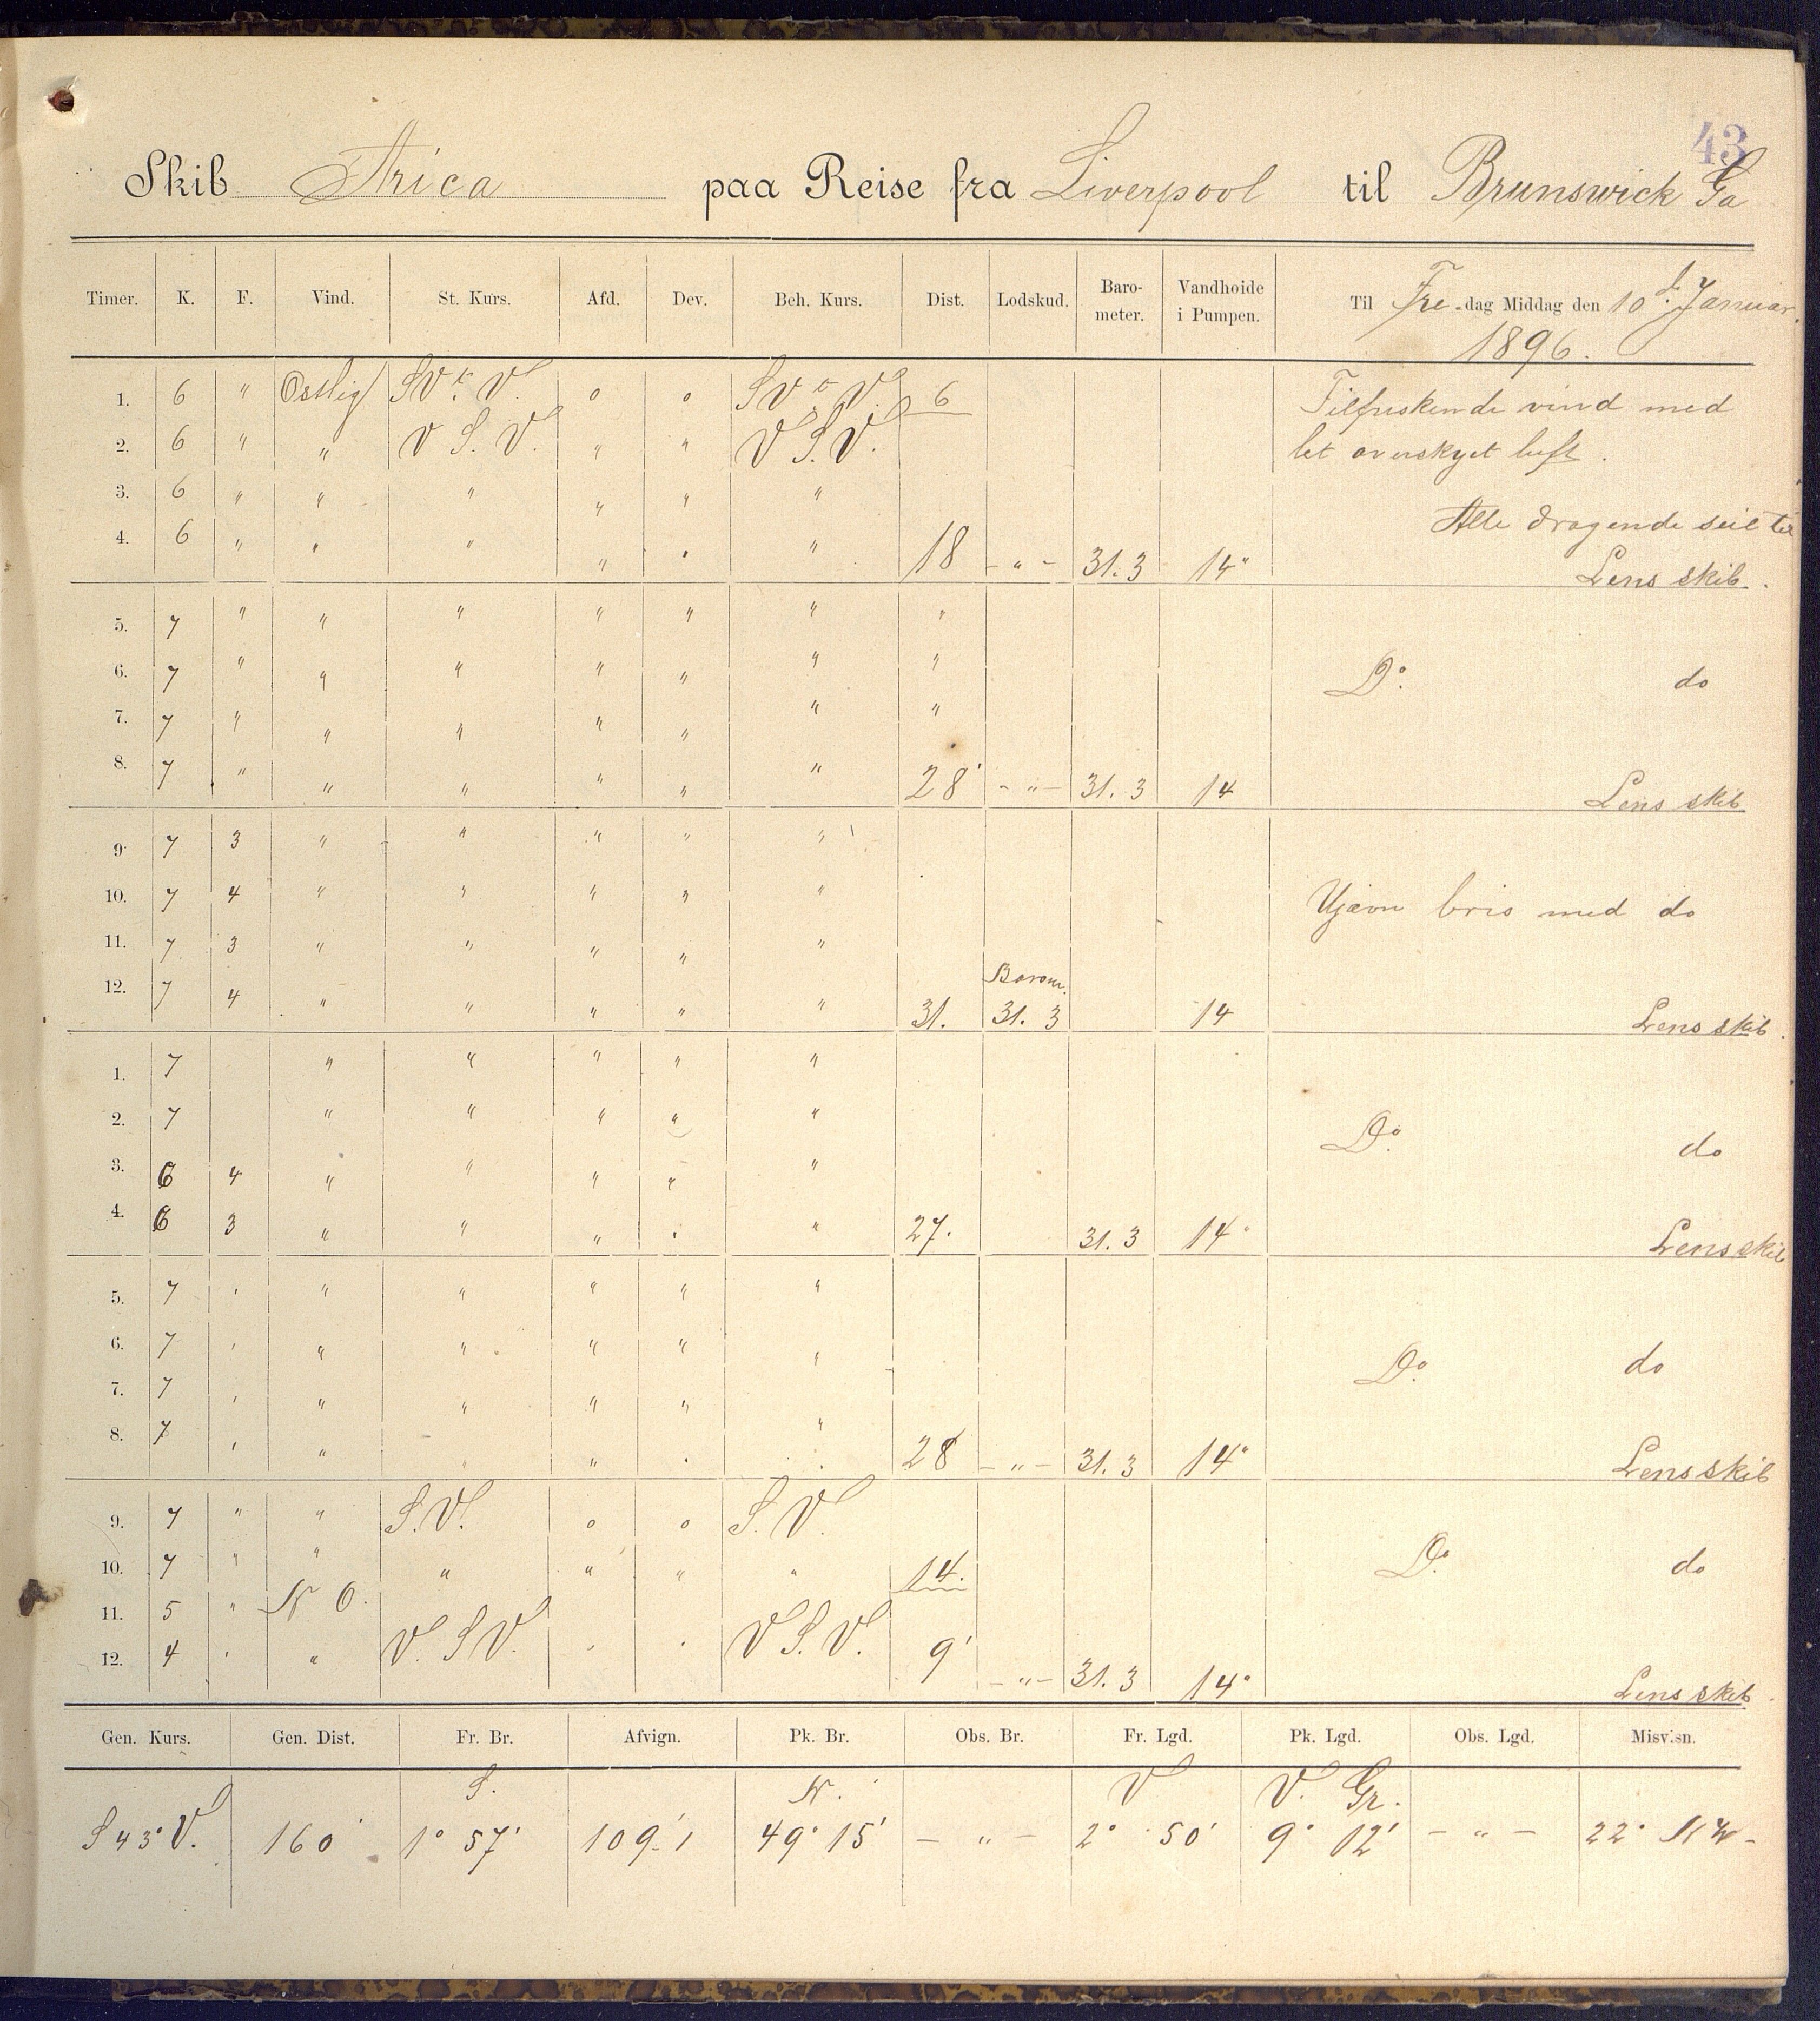 43
Skib Arica paa Reise fra Liverpool til Brunswick Ga
Timer. K. F. Vind. St. Kurs. Afd. Dev. Beh. Kurs. Dist. Lodskud. Baro-meter. Vandhoide i Pumpen. Til Fre-dag Middag den 10d. Januar.
1896.
1. 6 " Ostlig SV t. V. 0 0 SV t. V. 6 Tilfriskende vind med
2. 6 " " V S. V. " " V S. V. let overskyet luft.
3. 6 " " " " " "
Alle dragende seil til
4. 6 " " " " " " 18 - " - 31.3 14" Lens skib.
5. 7 " " " " " " "
6. 7 " " " " " " " Do. do
7. 7 " " " " " " "
8. 7 " " " " " " 28' - " - 31.3 14 Lens skib
9. 7 3 " " " " "
10. 7 4 " " " " " Ujævn bris med do
11. 7 3 " " " " "
Barom.
12. 7 4 " " " " " 31. 31.3 14 Lens skib.
1. 7 " " " " "
2. 7 " " " " " Do. do
3. 6 4 " " " " "
4. 6 3 " " " " " 27. 31.3 14" Lens skib
5. 7 " " " " " "
6. 7 " " " " " " Do. do
7. 7 " " " " " "
8. 7 " " " " " " 28 - " - 31.3 14" Lens skib
9. 7 " " S. V. 0 0 S. V.
10. 7 " " " " " " 14. Do. do
11. 5 " N O.
12. 4 " " V. S V. " " V S. V. 9' - " - 31.3 14" Lens skib.
Gen. Kurs. Gen. Dist. Fr. Br. Afvign. Pk. Br. Obs. Br. Fr. Lgd. Pk. Lgd. Obs. Lgd. Misvisn.
S. N. V V. Gr.
S 43° V. 160' 1° 57' 109.'1 49° 15' - " - 2° 50' 9° 12' - " - 22° NW-